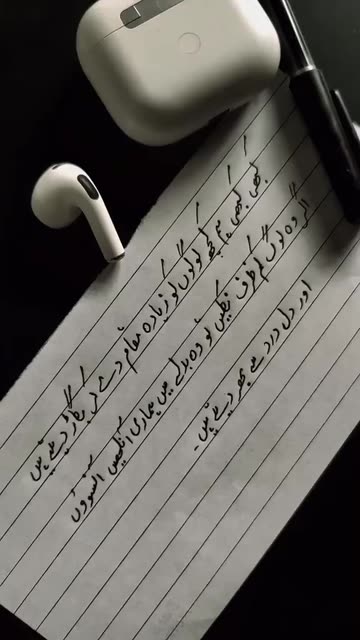 کبھی کبھی ہم کچھ لوگوں کو زیادہ مقام دے کر بگاڑ دیتے ہیں
اگر وہ لوگ کم ظرف نکلیں تو وہ بدلے میں ہماری آنکھیں آنسوؤں
اور دل درد سے بھر دیتے ہیں۔